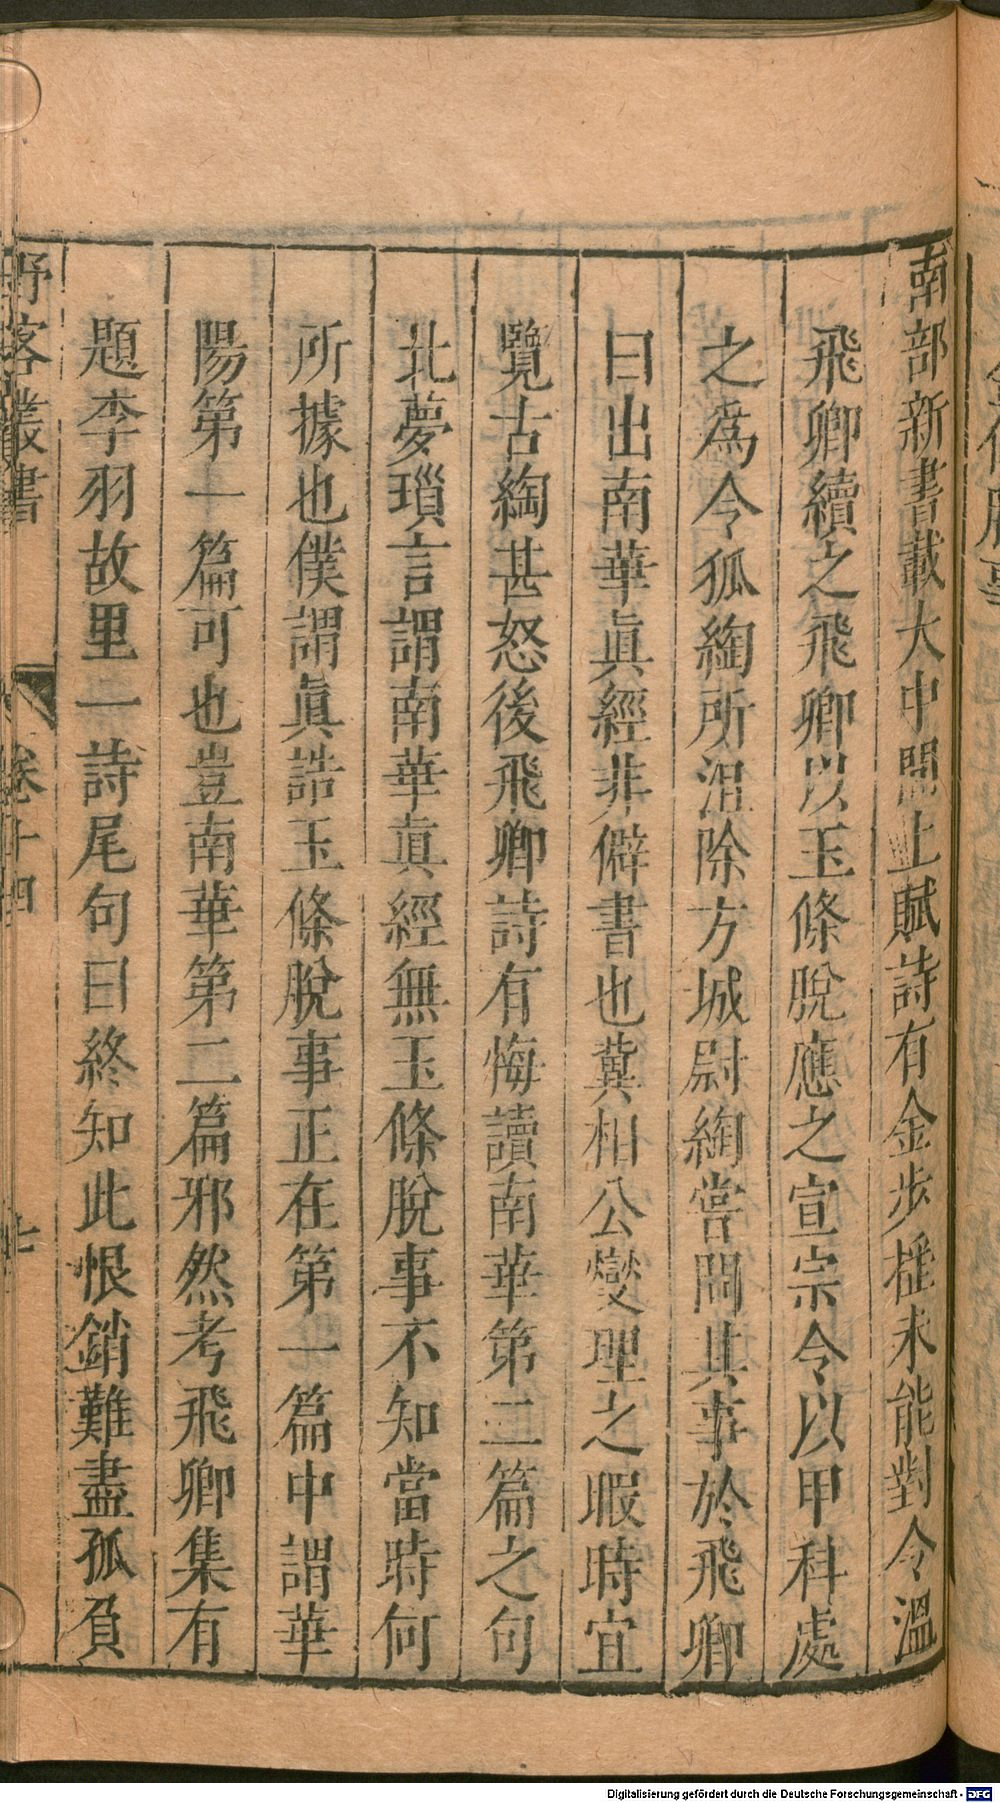 南部新書載大中間上賦詩有金步搖未能對令溫
飛卿續之飛卿以玉條脫應之宣宗令以甲科處
之爲令狐綯所沮除方城尉綯嘗問其事於飛卿
曰出南華眞經非僻書也冀相公燮理之暇時宜
覽古綯甚怒後飛卿詩有悔讀南華第二篇之句
北夢瑣言謂南華眞經無玉條脫事不知當時何
所據也僕謂眞誥玉條脫事正在第一篇中謂華
陽第一篇可也豈南華第二篇邪然考飛卿集有
題李羽故里一詩尾句曰終知此恨銷難盡孤負
野客叢書 卷十四
Digitalisierung gefördert durch die Deutsche Forschungsgemeinschaft - DFG